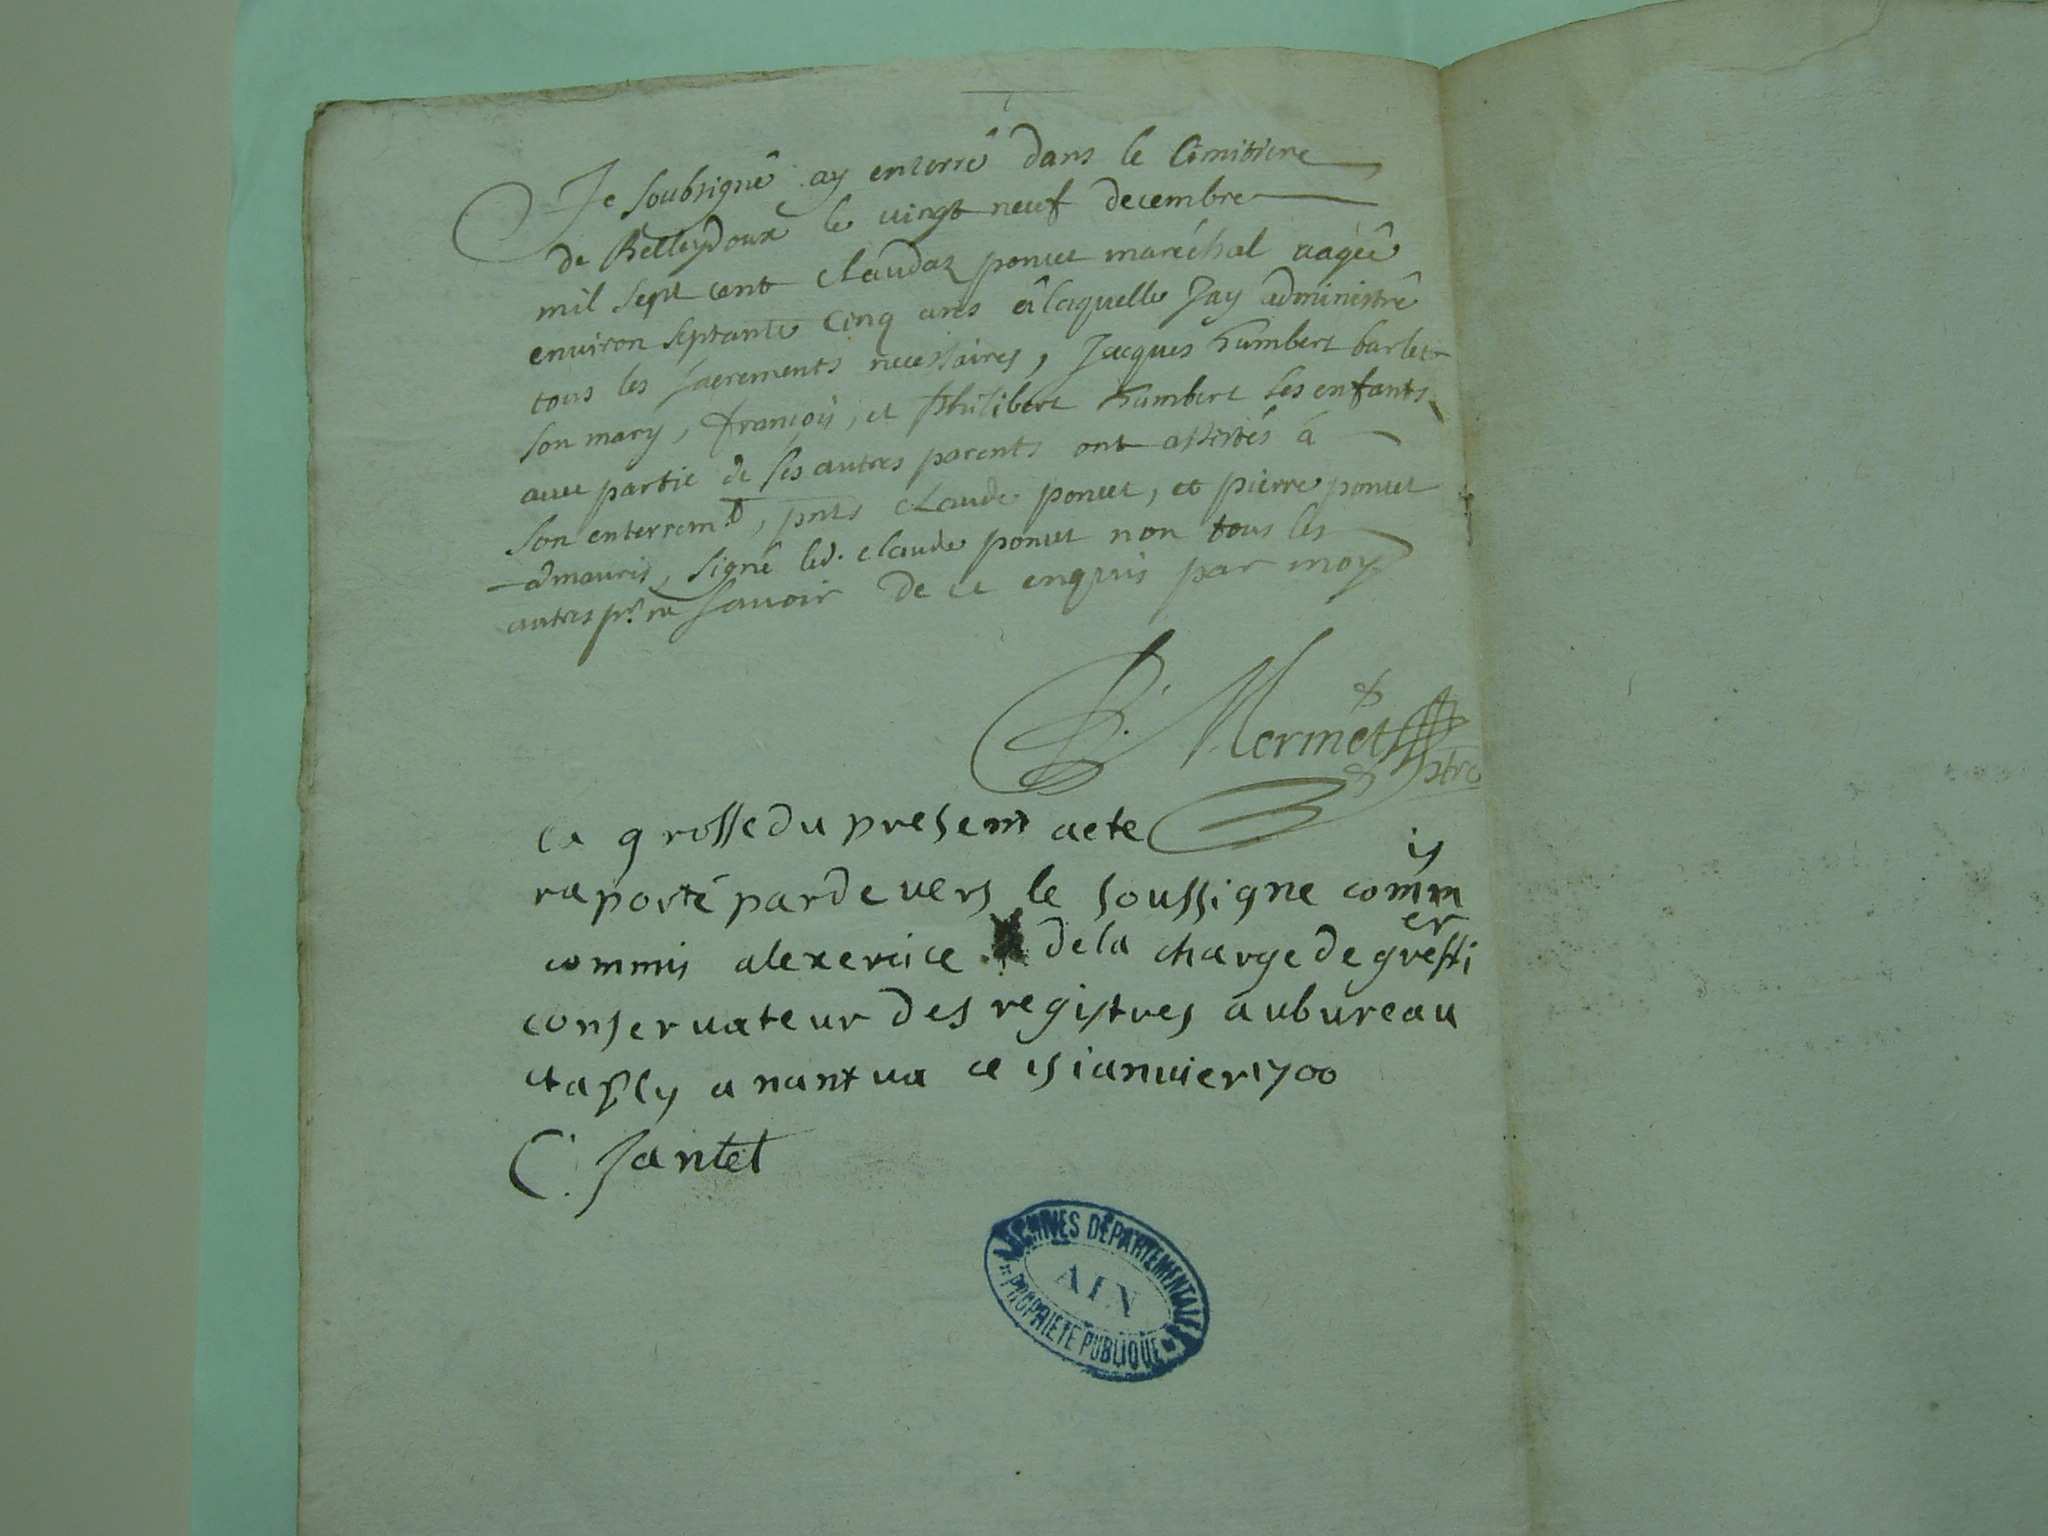 Je soubsigné ay enterré dans le Cimitiere
de Belleydoux le vingt neuf decembre
mil sept cent Claudaz poncet maréchal aagée
environ septante Cinq ans â laquelle Jay administré
tous les sacrements necessaires, Jacques humbert barlet
son mary, françois, et Philibert humbert ses enfants
avec partie de ses autres parents ont assistés á
son enterrem.t, pnts Claude poncet, et pierre poncet
signé led. Claude poncet non tous les
autres pr. ne savoir de ce enquis par moy
Mermet
ptre
la grosse du present acte
raporté pardevers le soussigne comm is
commis a lexercice de la charge de greffi er
conservateur des registres au bureau
etably a nantua ce 15 ianvier 1700
C. Jantet
ARCHIVES DÉPARTEMENTALES
AIN
PROPRIÉTÉ PUBLIQUE